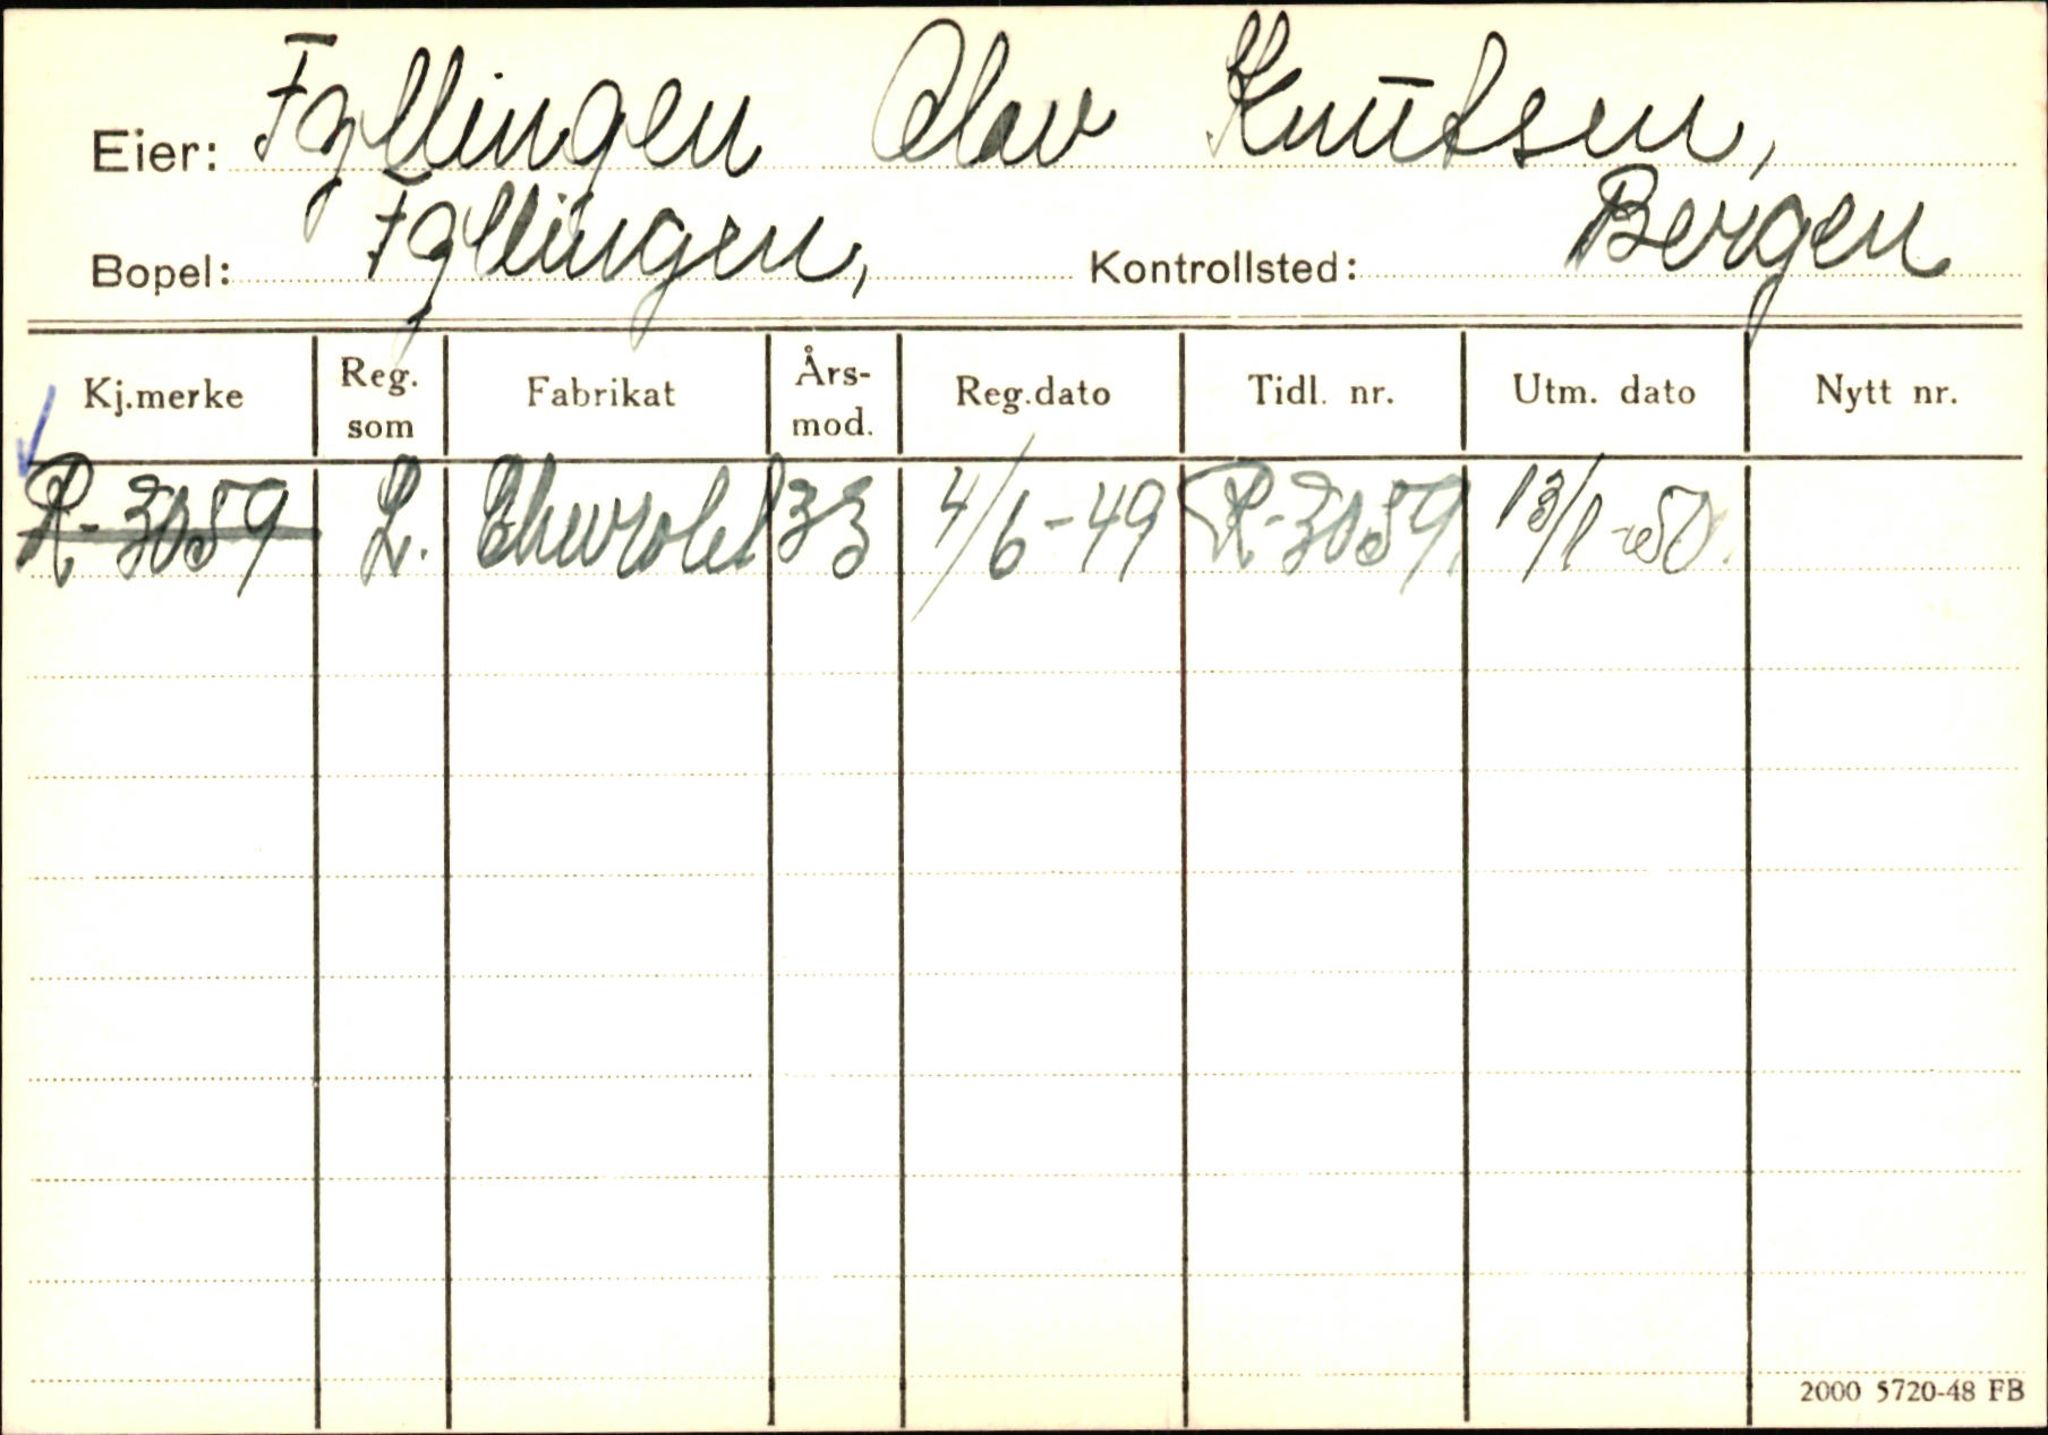 Eier: Fyllingen Olav Knutsen,
Bopel: Fyllingen, Kontrollsted: Bergen
Kj.merke Reg. som Fabrikat Års- mod. Reg.dato Tidl. nr. Utm. dato Nytt nr.
R-3059 L. Chevrolet 33 4/6-49 R-3059. 13/1-50.
2000 5720-48 FB